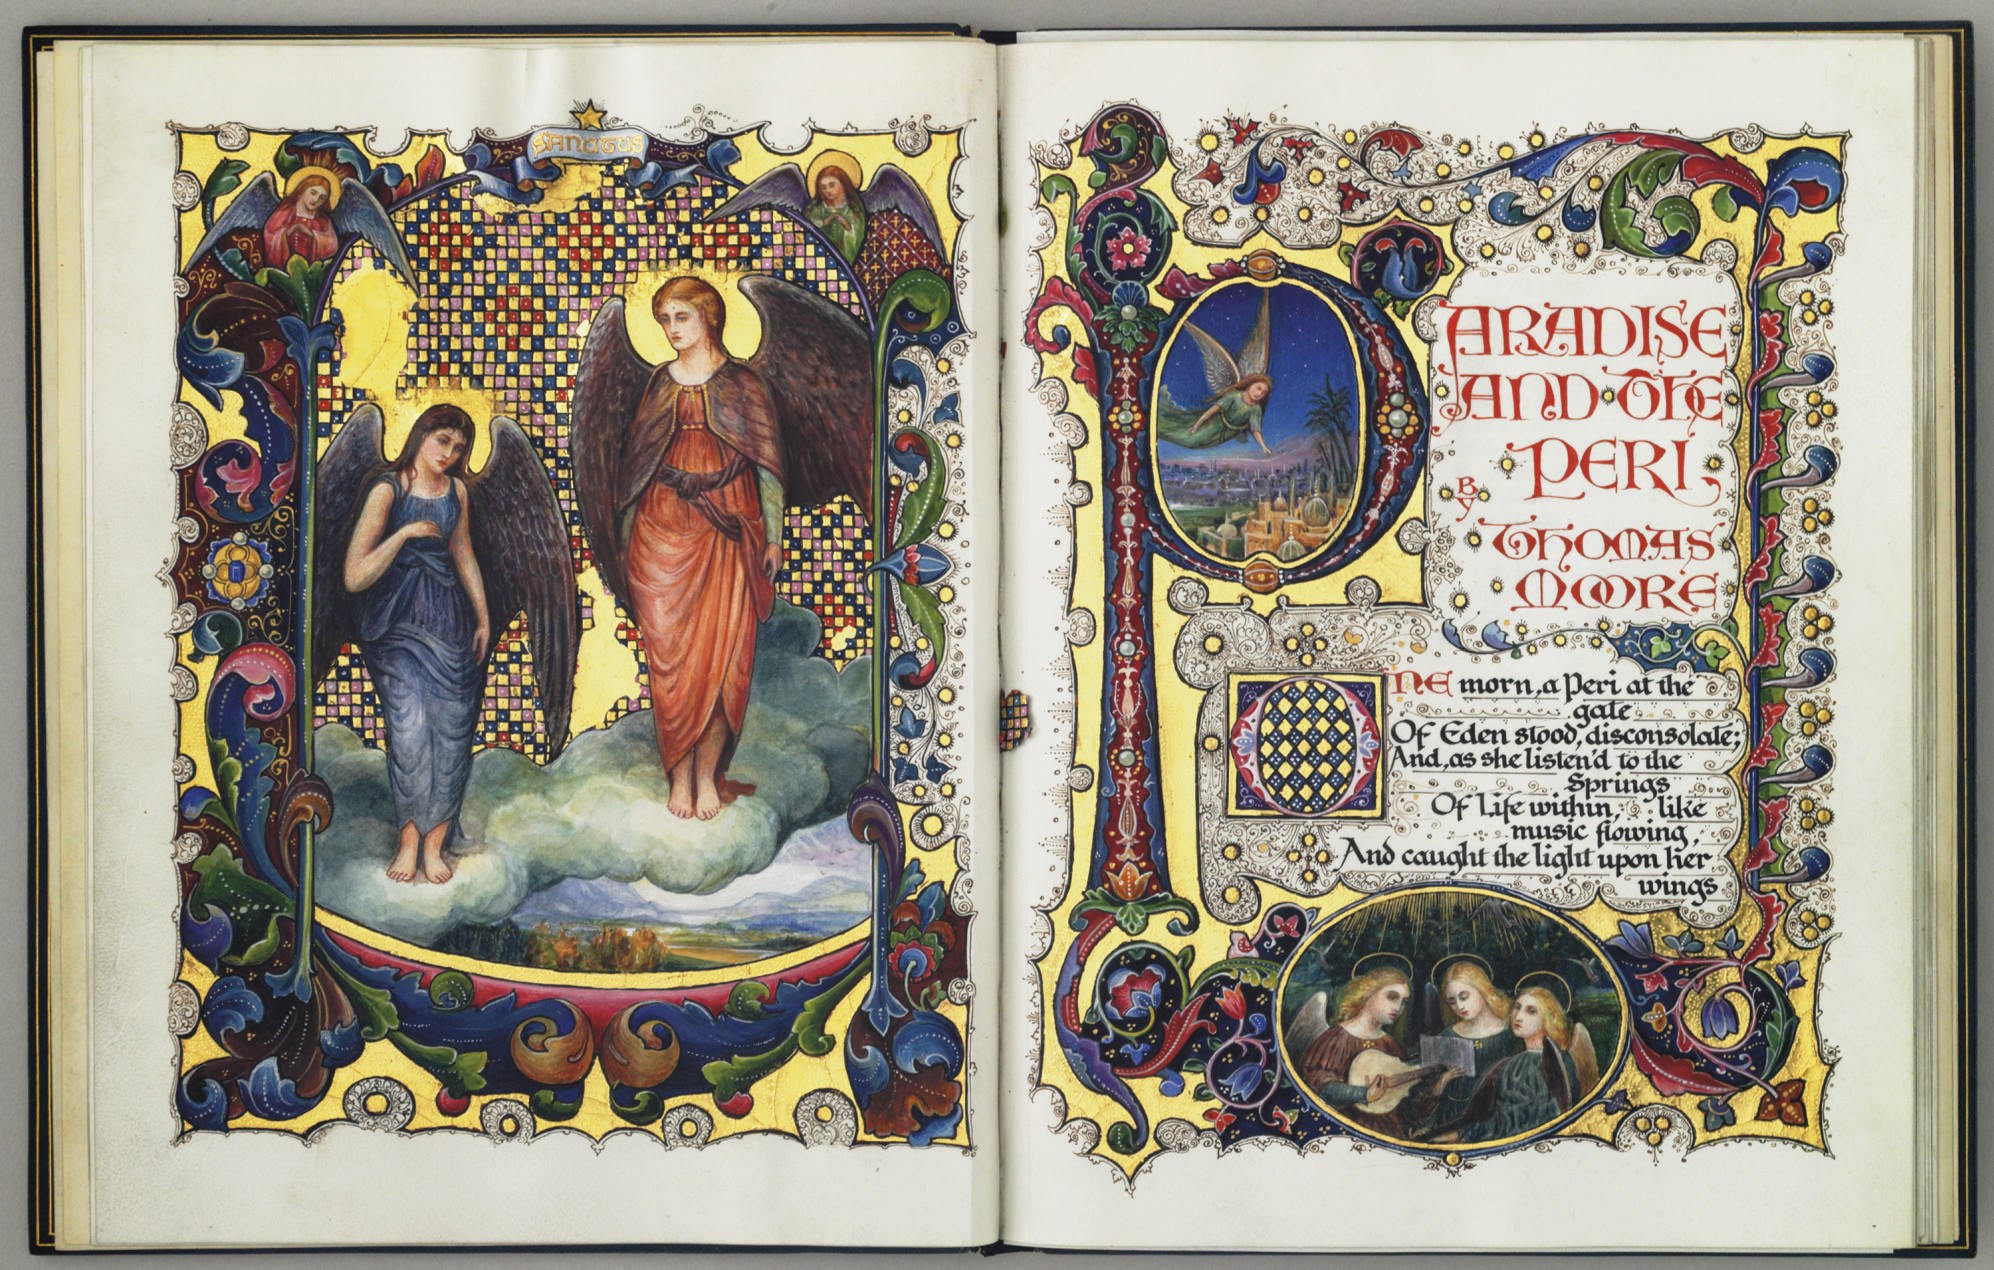 SANCTUS
PARADISE
AND THE
PERI
BY
THOMAS
MOORE
ONE morn, a Peri at the
gate
Of Eden stood, disconsolate;
And, as she listen'd to the
Springs
Of Life within, like
music flowing,
And caught the light upon her
wings